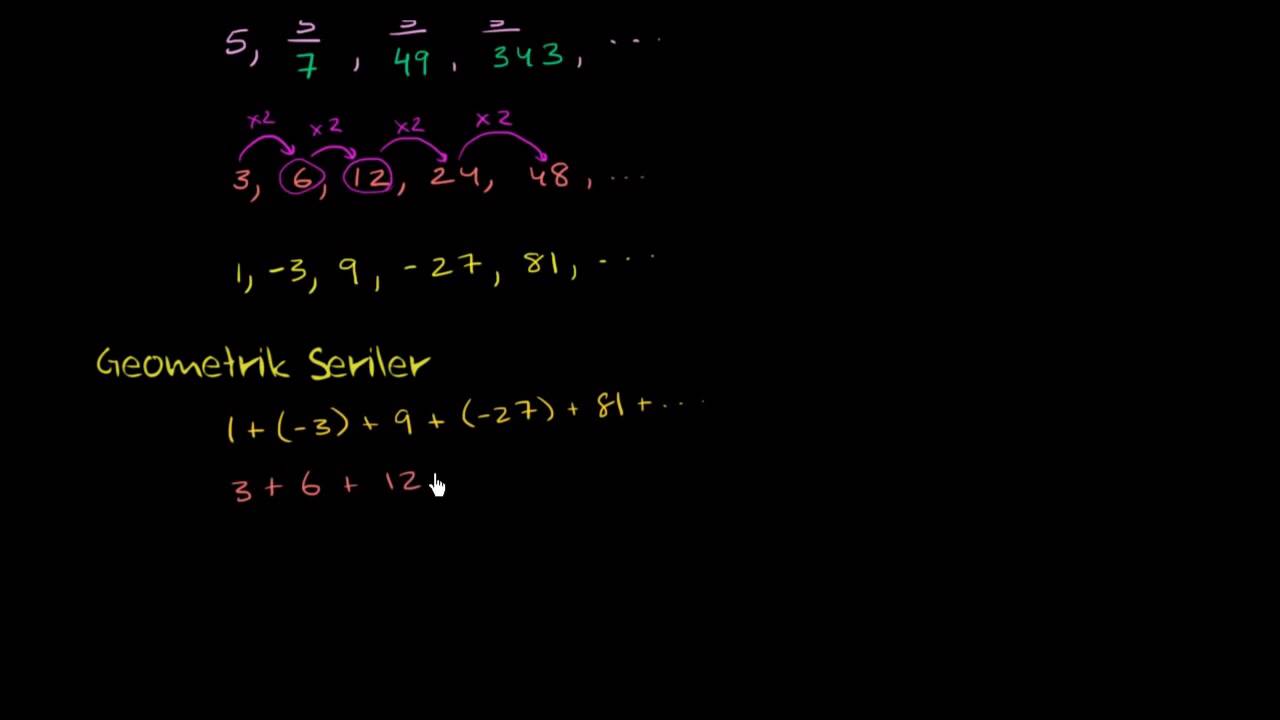 5, 5/7, 5/49, 5/343, ...
×2 ×2 ×2 ×2
3, 6, 12, 24, 48, ...
1, -3, 9, -27, 81, ...
Geometrik Seriler
1 + (-3) + 9 + (-27) + 81 + ...
3 + 6 + 12